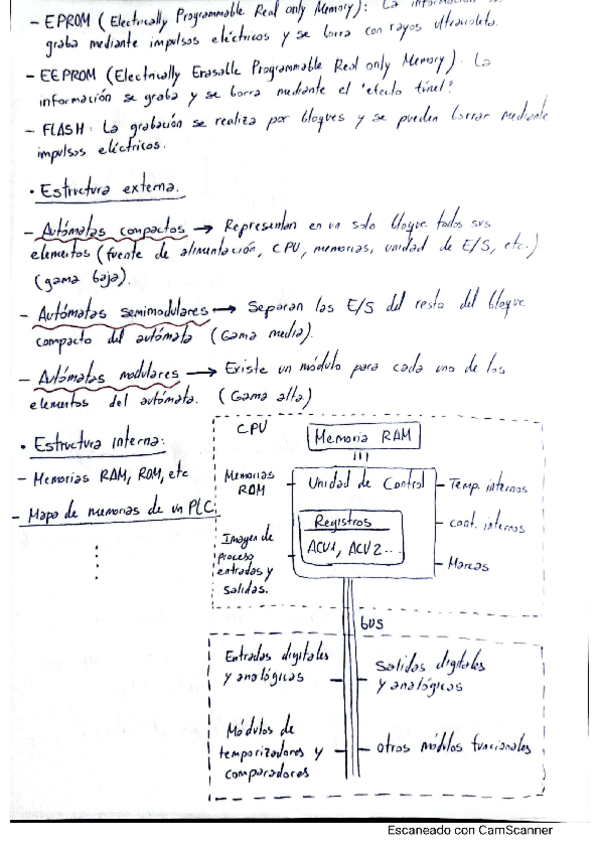 - EPROM (Electrically Programmable Real only Memory): La información se
graba mediante impulsos eléctricos y se borra con rayos ultravioleta.
- EEPROM (Electrically Erasable Programmable Real only Memory): La
información se graba y se borra mediante el "efecto túnel".
- FLASH: La grabación se realiza por bloques y se pueden borrar mediante
impulsos eléctricos.
· Estructura externa.
- Autómatas compactos → Representan en un solo bloque todos sus
elementos (fuente de alimentación, CPU, memorias, unidad de E/S, etc.)
(gama baja).
- Autómatas semimodulares → Separan las E/S del resto del bloque
compacto del autómata (Gama media).
- Autómatas modulares → Existe un módulo para cada uno de los
elementos del autómata. (Gama alta)
· Estructura interna:
- Memorias RAM, ROM, etc
- Mapa de memorias de un PLC.
CPU
Memoria RAM
Memorias
ROM
Unidad de Control
Registros
ACU1, ACU2...
- Temp. internos
- cont. internos
- Marcas
Imagen de
proceso
entradas y
salidas.
bus
Entradas digitales
y analógicas
Salidas digitales
y analógicas
Módulos de
temporizadores y
comparadores
- otros módulos funcionales
Escaneado con CamScanner